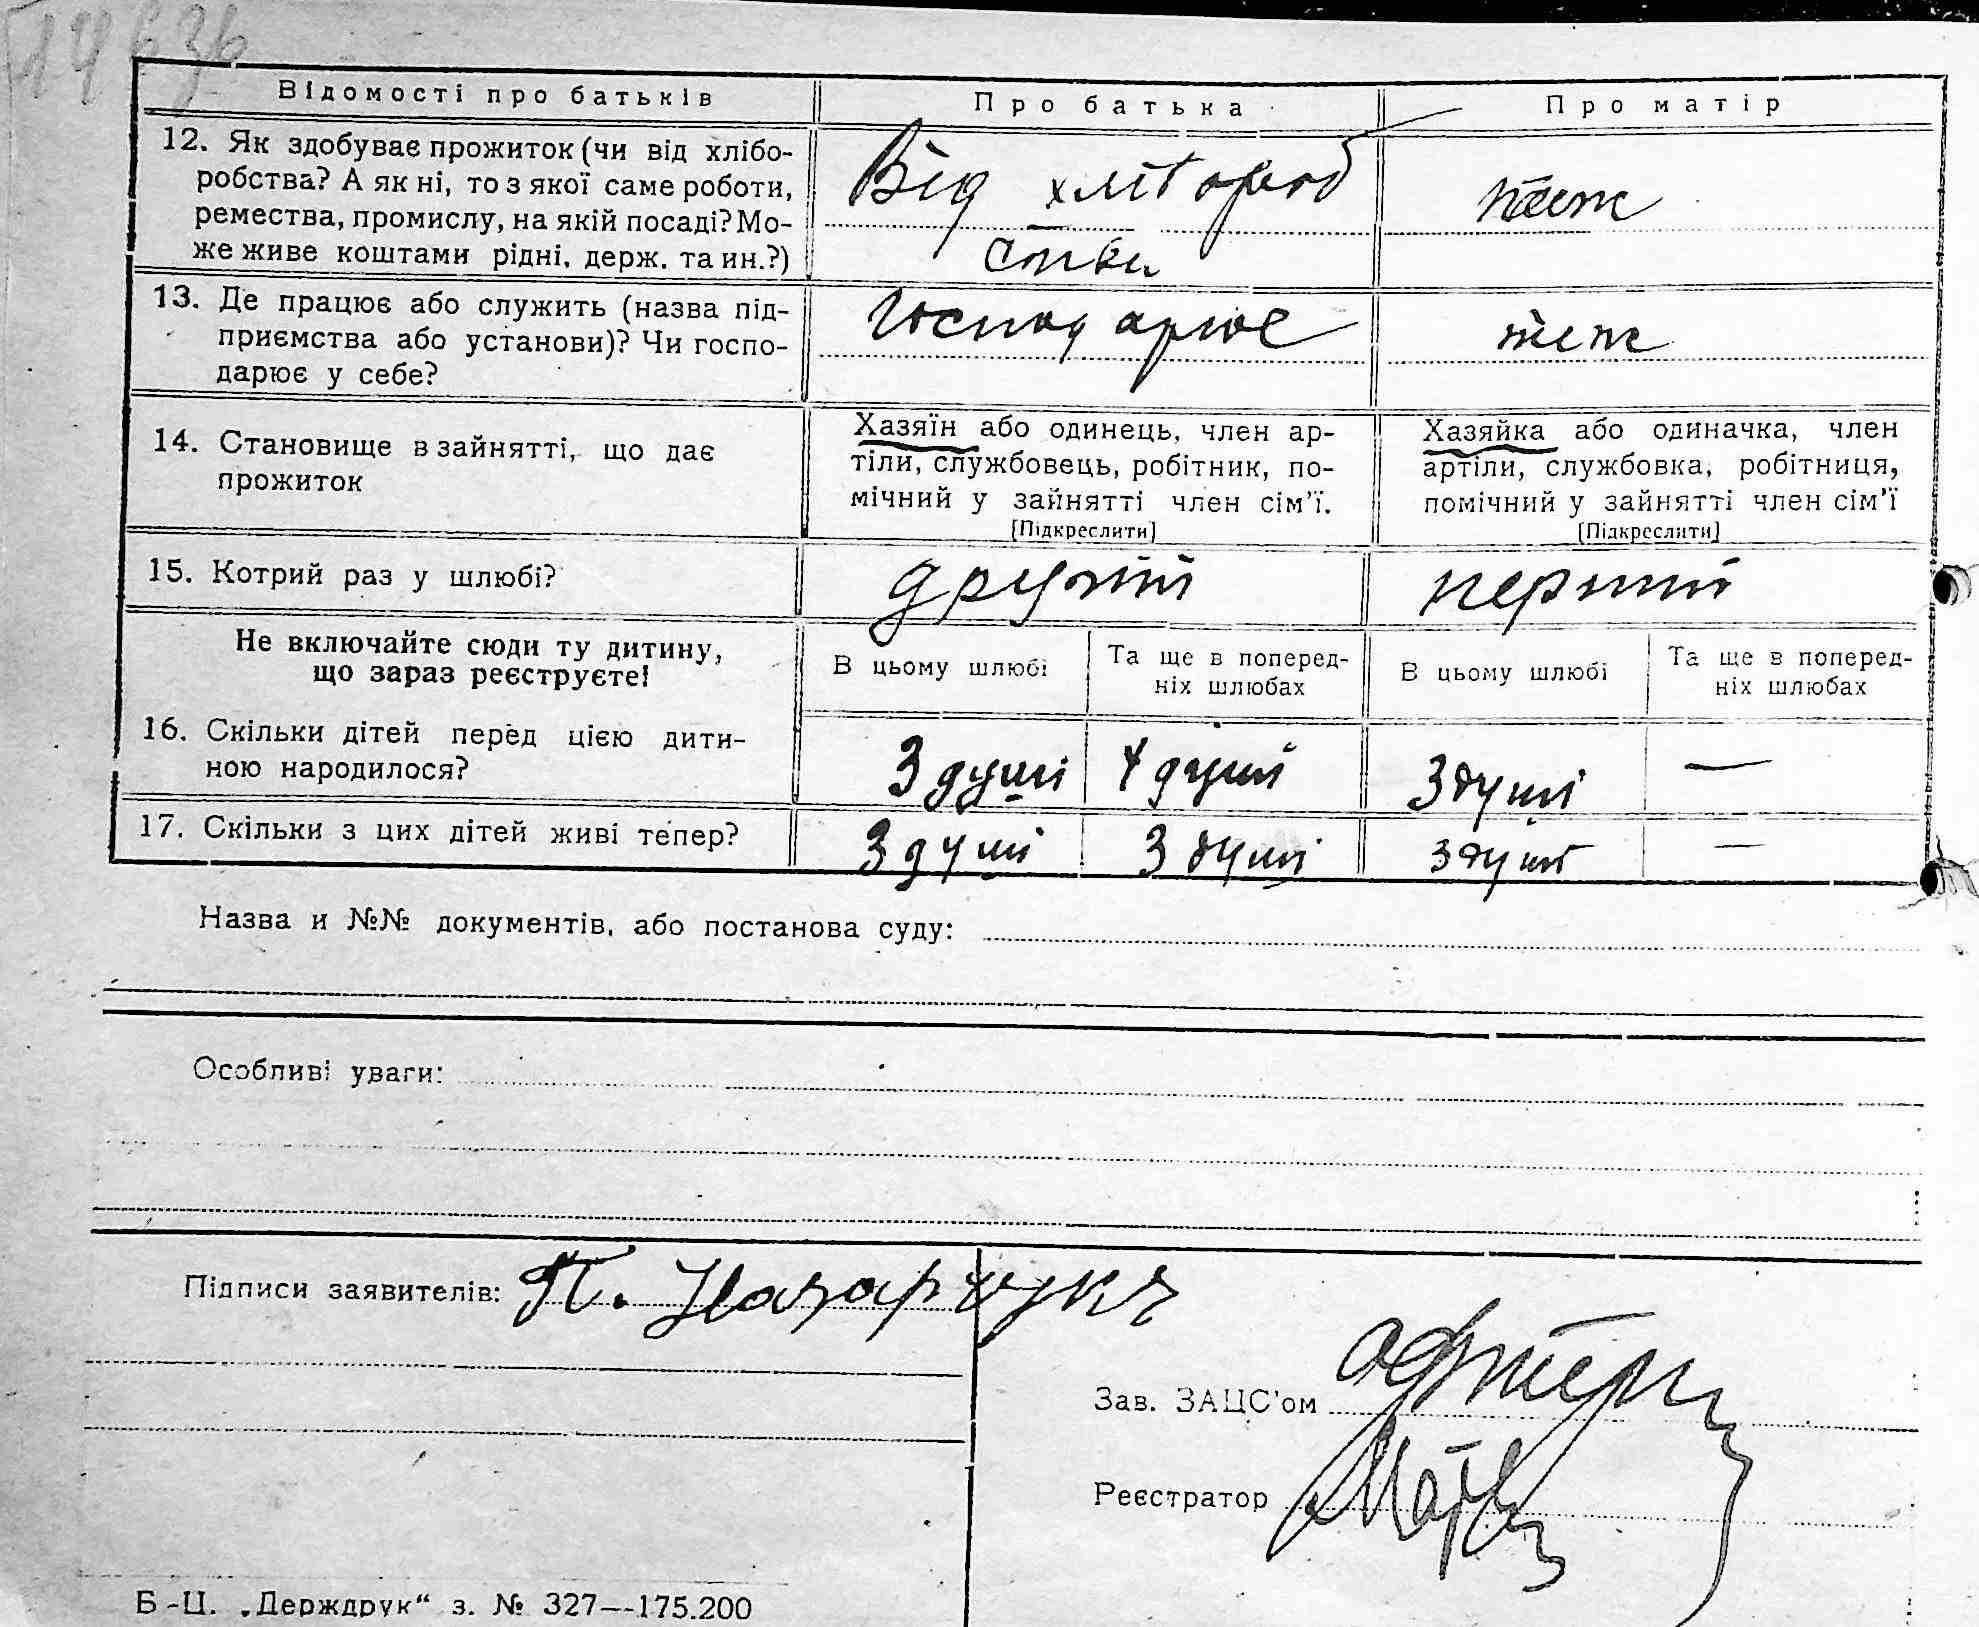 Відомості про батьків
Про батька
Про матір
12. Як здобуває прожиток (чи від хлібо-
робства? А як ні, то з якої саме роботи,
ремества, промислу, на якій посаді? Мо-
же живе коштами рідні, держ. та ин.?)
Від хлібороб
ства
теж
13. Де працює або служить (назва під-
приємства або установи)? Чи госпо-
дарює у себе?
Господарює
теж
14. Становище в зайнятті, що дає
прожиток
Хазяїн або одинець, член ар-
тіли, службовець, робітник, по-
мічний у зайнятті член сім'ї.
[Підкреслити]
Хазяйка або одиначка, член
артіли, службовка, робітниця,
помічний у зайнятті член сім'ї
[Підкреслити]
15. Котрий раз у шлюбі?
другий
перший
Не включайте сюди ту дитину,
що зараз реєструєте!
В цьому шлюбі
Та ще в поперед-
ніх шлюбах
В цьому шлюбі
Та ще в поперед-
ніх шлюбах
16. Скільки дітей перед цією дити-
ною народилося?
3 душі
4 душі
3 душі
—
17. Скільки з цих дітей живі тепер?
3 душі
3 душі
3 душі
—
Назва и №№ документів, або постанова суду:
Особливі уваги:
Підписи заявителів: П. Назарчука
Зав. ЗАЦС'ом
Реєстратор
Б-Ц. „Держдрук“ з. № 327—175.200